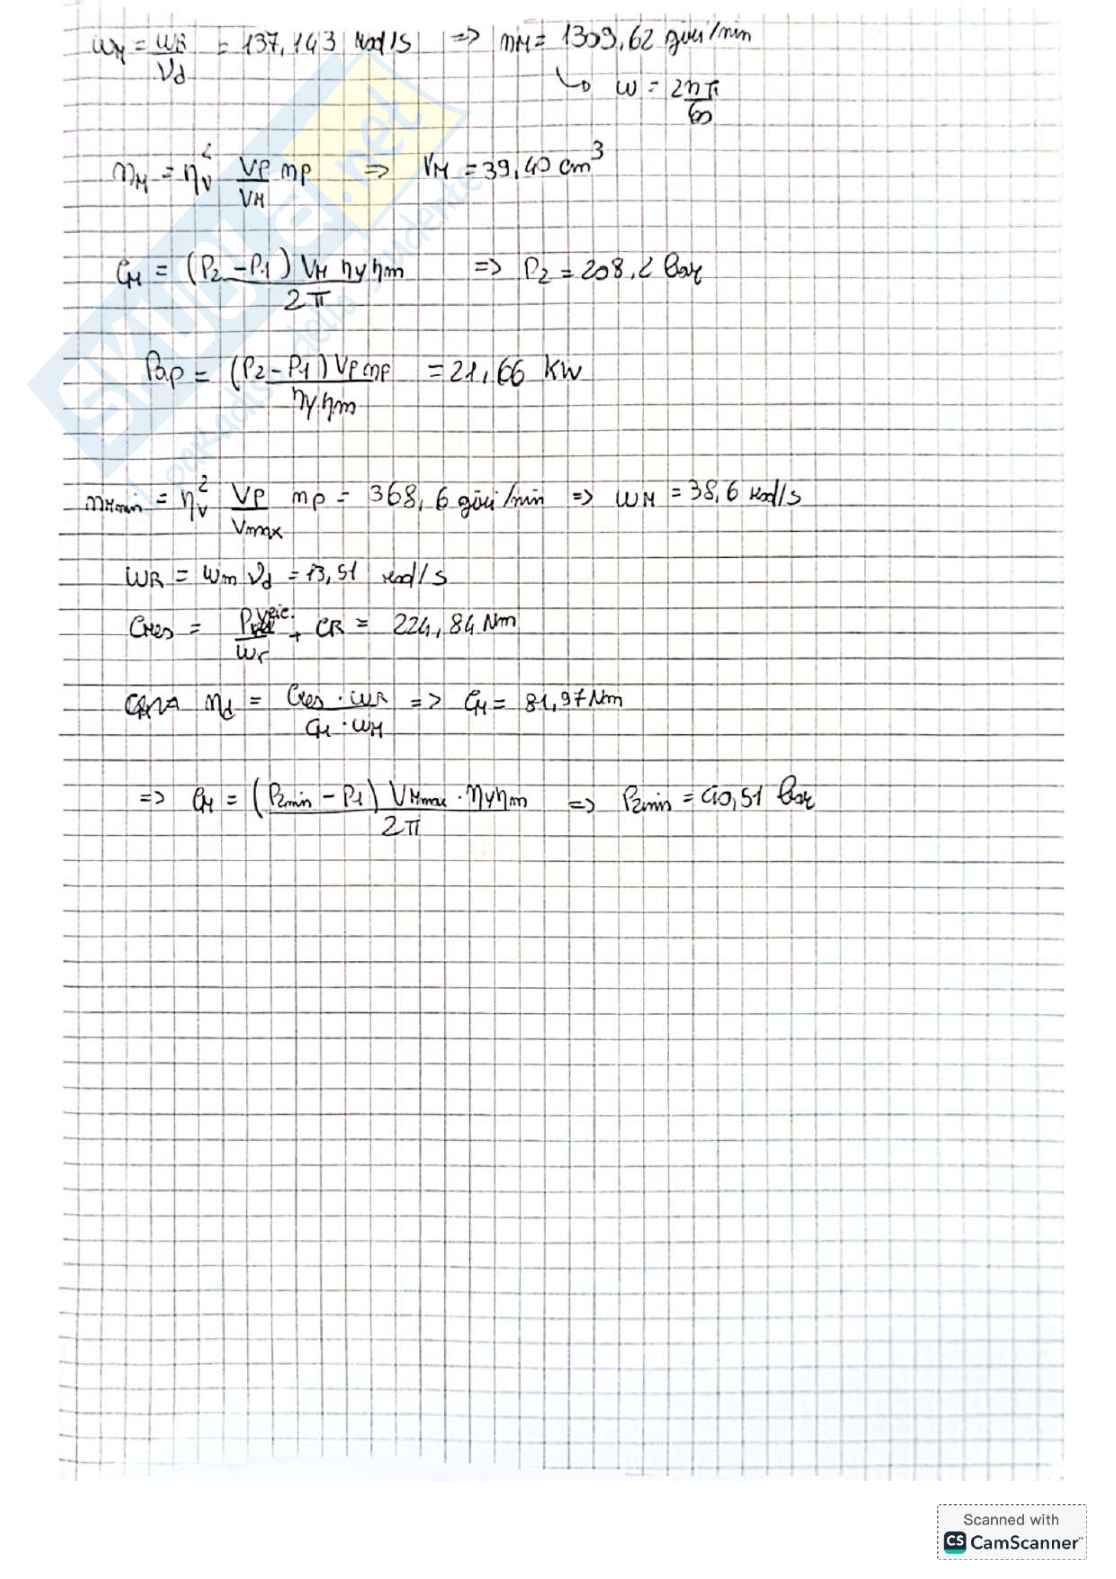 ωM = ωR/νd = 137,143 rad/s => nM = 1309,62 giri/min
↳ ω = 2nπ/60
nM = ηv² VP/VM nP => VM = 39,40 cm³
CM = (P2-P1) VM ηy ηm / 2π => P2 = 208,2 bar
Pap = (P2-P1) VP nP / ηy ηm = 21,66 kW
nMmin = ηv² VP/Vmax nP = 368,6 giri/min => ωM = 38,6 rad/s
ωR = ωm νd = 13,51 rad/s
Cres = Pveic./ωr + CR = 224,84 Nm
ηd = Cres · ωR / CM · ωM => CM = 81,97 Nm
=> CM = (P2min - P1) VMmax · ηy ηm / 2π => P2min = 40,51 bar
SKUOLA.net
Scanned with
CS CamScanner